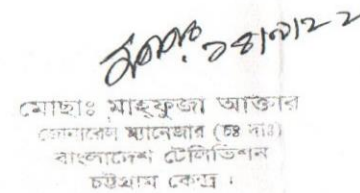 ১৪/৭/২২
মোছাঃ মাহ্‌ফুজা আক্তার
জেনারেল ম্যানেজার (চঃ দাঃ)
বাংলাদেশ টেলিভিশন
চট্টগ্রাম কেন্দ্র।